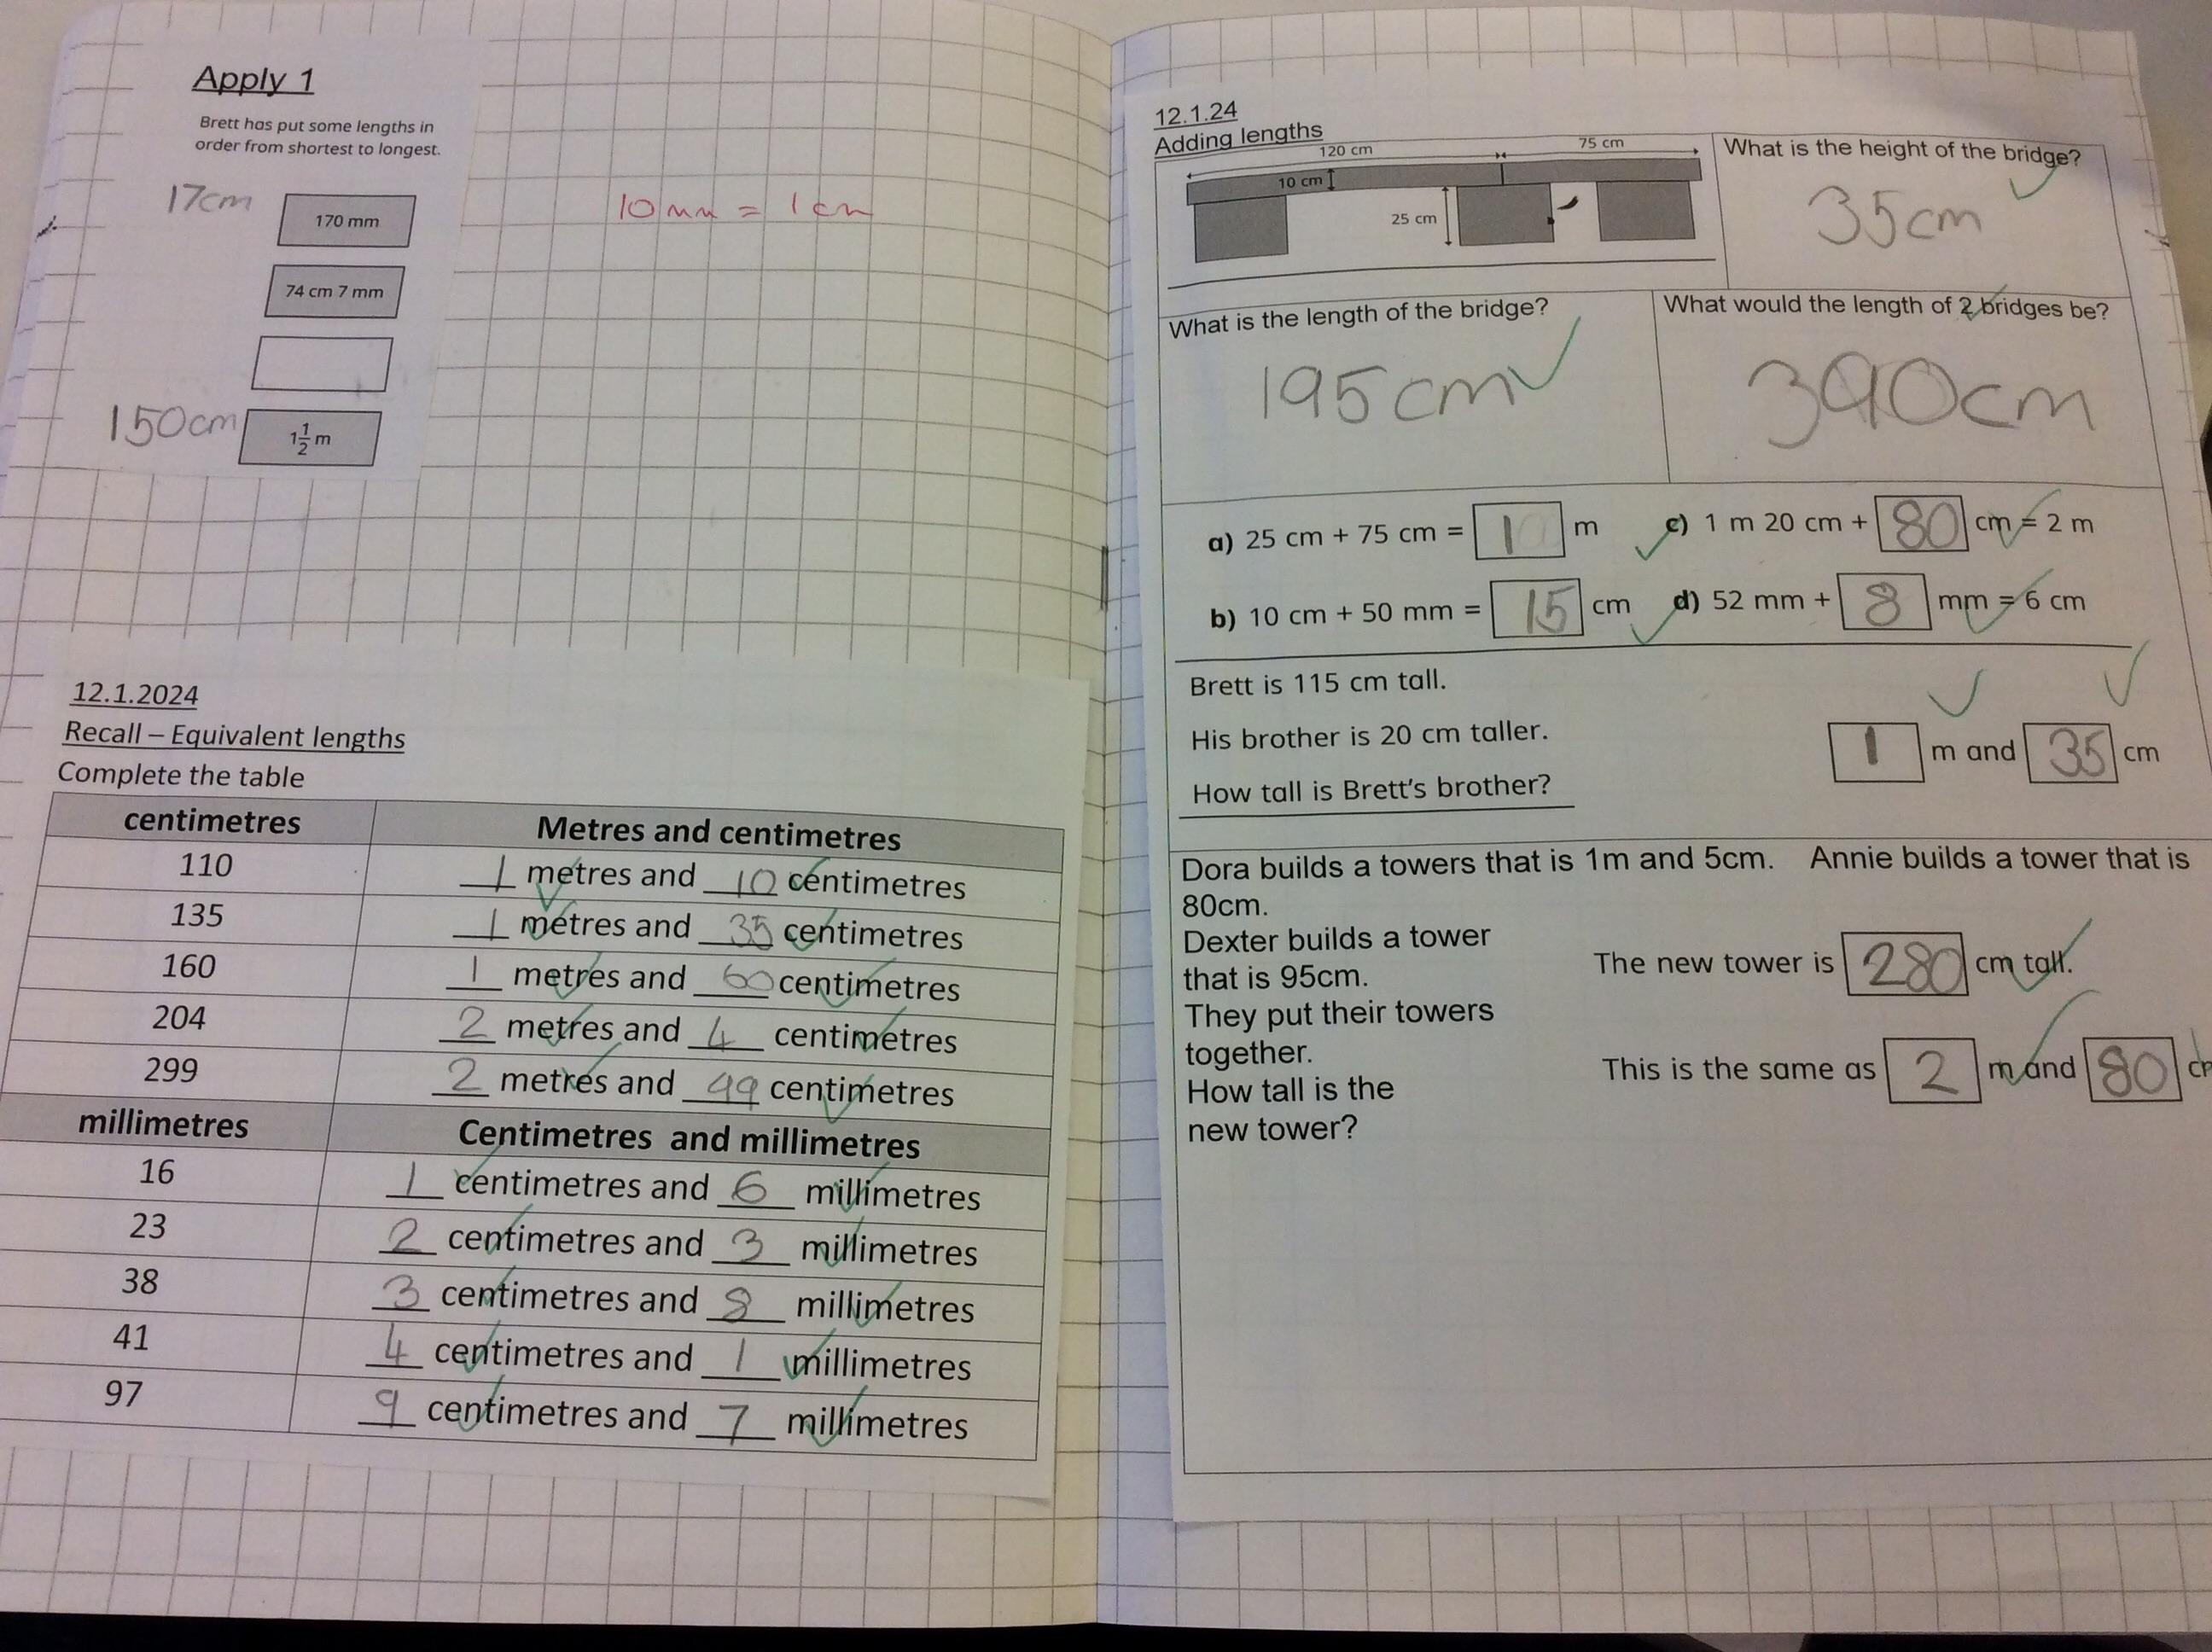 Apply 1
Brett has put some lengths in
order from shortest to longest.
17cm
170 mm
10mm = 1cm
74 cm 7 mm
150cm
1 1/2 m
12.1.2024
Recall – Equivalent lengths
Complete the table
centimetres Metres and centimetres
110 1 metres and 10 centimetres
135 1 metres and 35 centimetres
160 1 metres and 60 centimetres
204 2 metres and 4 centimetres
299 2 metres and 99 centimetres
millimetres Centimetres and millimetres
16 1 centimetres and 6 millimetres
23 2 centimetres and 3 millimetres
38 3 centimetres and 8 millimetres
41 4 centimetres and 1 millimetres
97 9 centimetres and 7 millimetres
12.1.24
Adding lengths
120 cm 75 cm
10 cm
25 cm
What is the height of the bridge?
35cm
What is the length of the bridge?
195cm
What would the length of 2 bridges be?
390cm
a) 25 cm + 75 cm = 1 m c) 1 m 20 cm + 80 cm = 2 m
b) 10 cm + 50 mm = 15 cm d) 52 mm + 8 mm = 6 cm
Brett is 115 cm tall.
His brother is 20 cm taller.
1 m and 35 cm
How tall is Brett's brother?
Dora builds a towers that is 1m and 5cm. Annie builds a tower that is
80cm.
Dexter builds a tower
that is 95cm.
They put their towers
together.
How tall is the
new tower?
The new tower is 280 cm tall.
This is the same as 2 m and 80